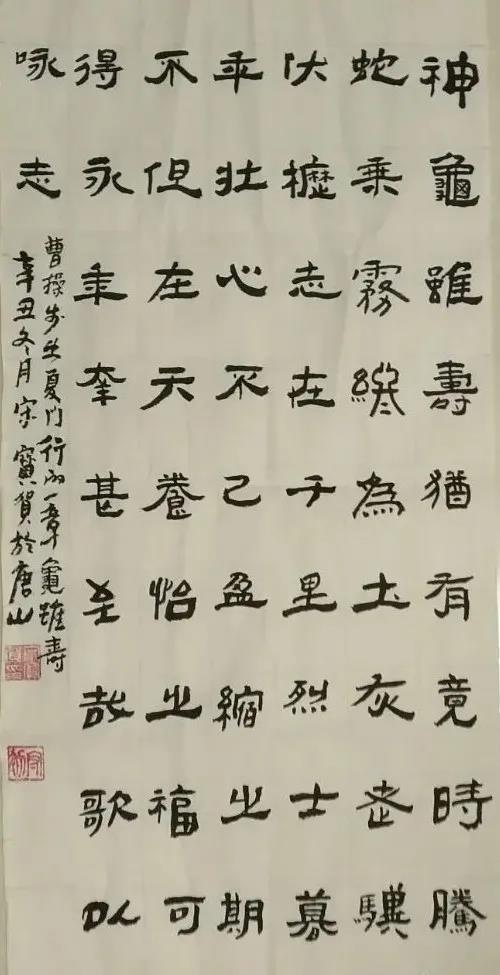 神龜雖壽猶有竟時騰
蛇乘霧終為土灰老驥
伏櫪志在千里烈士暮
年壯心不已盈縮之期
不但在天養怡之福可
得永年幸甚至哉歌以
咏志
曹操步出夏门行的一章龜雖寿
辛丑冬月宋寶賀於唐山